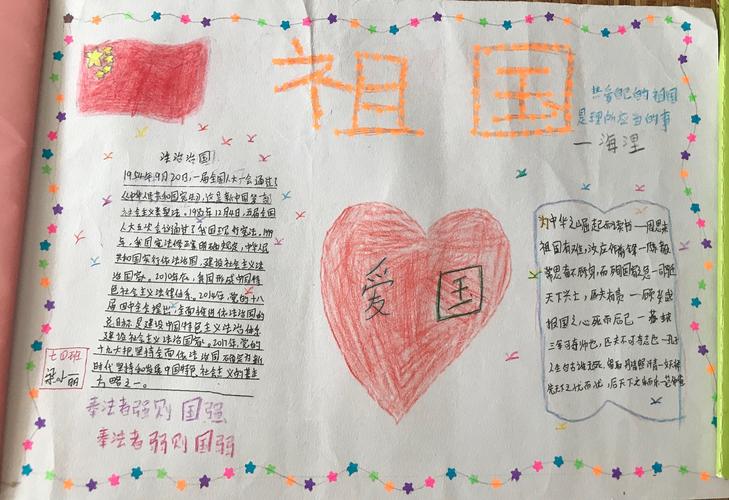 祖国
共爱自己的祖国
是理所应当的事
—海涅
法治治国
1954年9月20日,一届全国人大一会通过了
《中华人民共和国宪法》,这是新中国第一部
社会主义类型宪法。1982年12月4日,五届全国
人大五次会议通过了我国现行宪法。1999
年,我国宪法修正案明确规定,中华人民
共和国实行依法治国,建设社会主义法
治国家。2010年底,我国形成中国特
色社会主义法律体系。2014年,党的十八
届四中全会提出,全面推进依法治国的
总目标是建设中国特色主义法治体系
建设社会主义法治国家。2017年,党的
十九大把坚持全面依法治国确立为新
时代坚持和发展中国特色社会主义的基本
方略之一。
爱国
为中华之崛起而读书—周恩来
祖国有难,汝在作前锋—陈毅
常思奋不顾身,而殉国家之急—司马迁
天下兴亡,匹夫有责—顾炎武
报国之心死而后已—苏轼
三军可夺帅也,匹夫不可夺志也—孔子
人生自古谁无死,留取丹心照汗青—文天祥
先天下之忧而忧,后天下之乐而乐—范仲淹
七四班
梁小丽
奉法者强则国强
奉法者弱则国弱